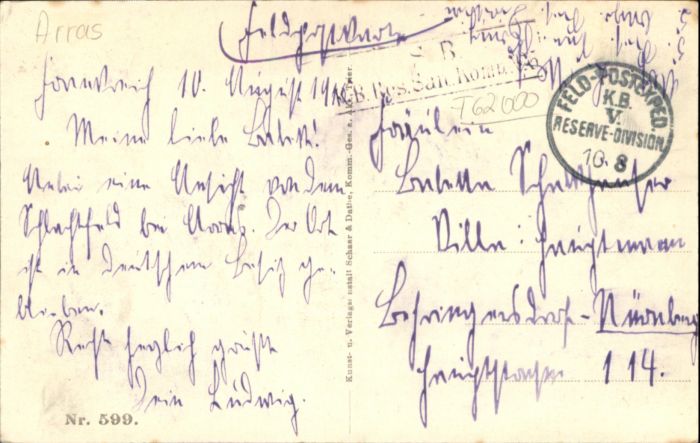 Arras
Feldpostkarte
Frankreich 10. August 19
Meine liebe Babett!
Anbei eine Ansicht von dem
Schlachtfeld bei Arras. Der Ort
ist in deutschem Besitz ge-
blieben.
Recht herzlich grüßt
Dein Ludwig.
Nr. 599.
Kunst- u. Verlagsanstalt Schaar & Dathe, Komm.-Ges. a. Akt., Trier.
K.B. Res. San. Komp.
T62000
FELD-POSTEXPED.
K.B.
V.
RESERVE-DIVISION
10. 8
Fräulein
Babette
Villa: Hauptmann
Behringersdorf - Nürnberg
Hauptstrasse 114.